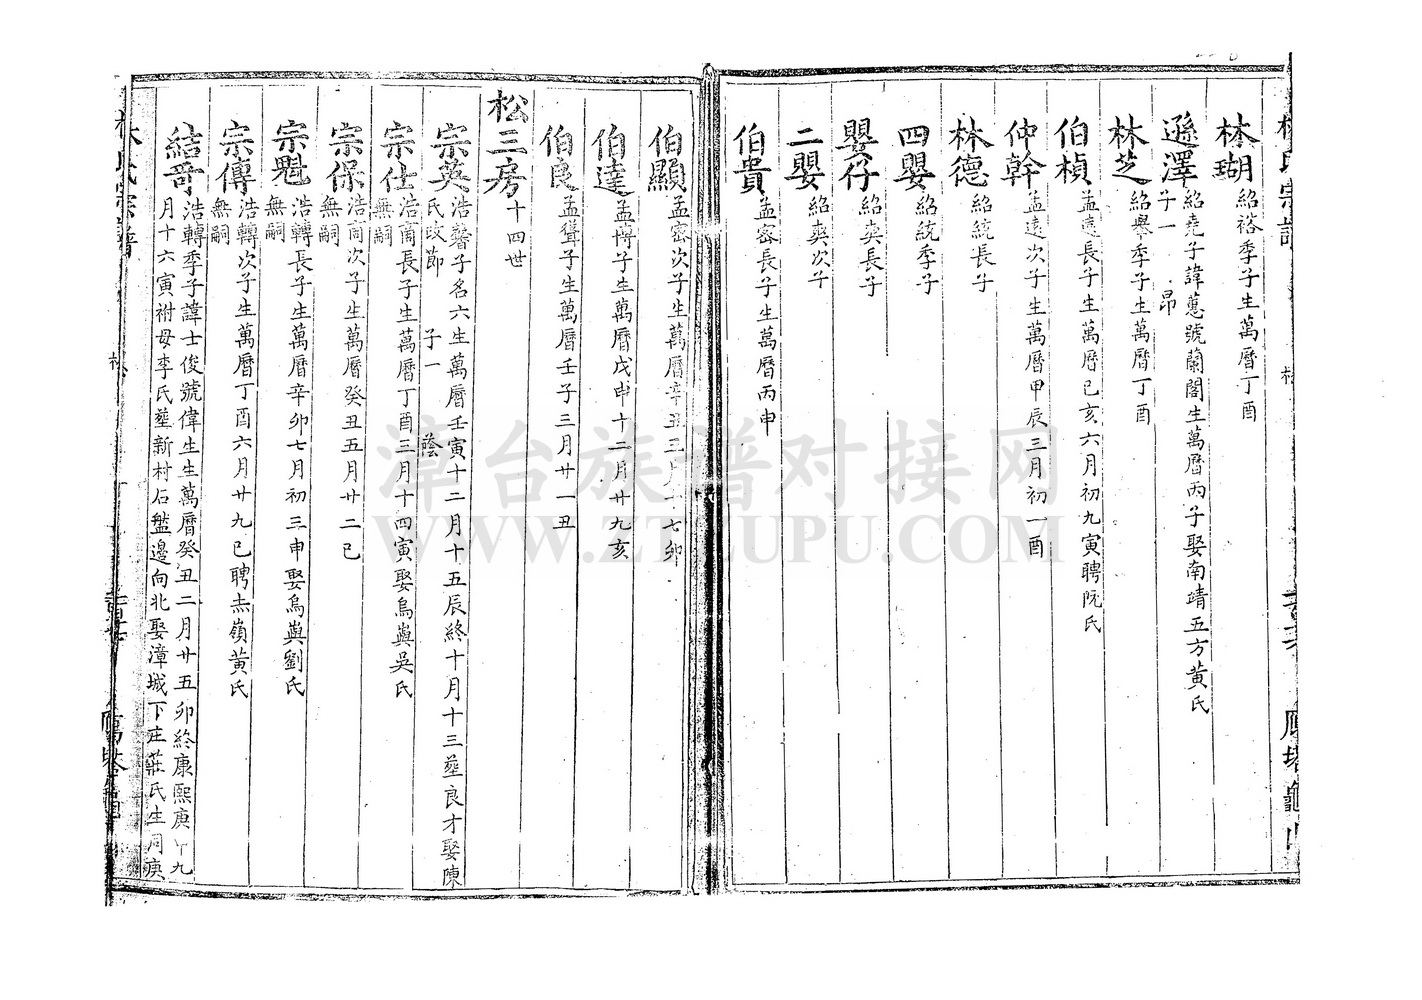 林瑚 紹裕季子生萬曆丁酉
遜澤 紹堯子諱蕙號蘭閣生萬曆丙子娶南靖五方黃氏
子一 昂
林芝 紹舉季子生萬曆丁酉
伯楨 孟遠長子生萬曆己亥六月初九寅聘阮氏
仲幹 孟遠次子生萬曆甲辰三月初一酉
林德 紹統長子
四嬰 紹統季子
嬰仔 紹奭長子
二嬰 紹奭次子
伯貴 孟密長子生萬曆丙申
伯顯 孟密次子生萬曆辛丑三月十七卯
伯達 孟博子生萬曆戊申十二月廿九亥
伯良 孟聳子生萬曆壬子三月廿一丑
松三房 十四世
宗英 浩馨子名六生萬曆壬寅十二月十五辰終十月十三塟良才娶陳
氏改節 子一 蔭
宗仕 浩啇長子生萬曆丁酉三月十四寅娶烏㠘吳氏
無嗣
宗保 浩啇次子生萬曆癸丑五月廿二巳
無嗣
宗魁 浩轉長子生萬曆辛卯七月初三申娶烏㠘劉氏
無嗣
宗傳 浩轉次子生萬曆丁酉六月廿九巳聘赤嶺黃氏
無嗣
結哥 浩轉季子諱士俊號偉生生萬曆癸丑二月廿五卯終康熙庚午九
月十六寅祔母李氏塟新村石盤邊向北娶漳城下庄莊氏生同庚
林氏宗譜
漳台族谱对接网
WWW.ZTZUPU.COM